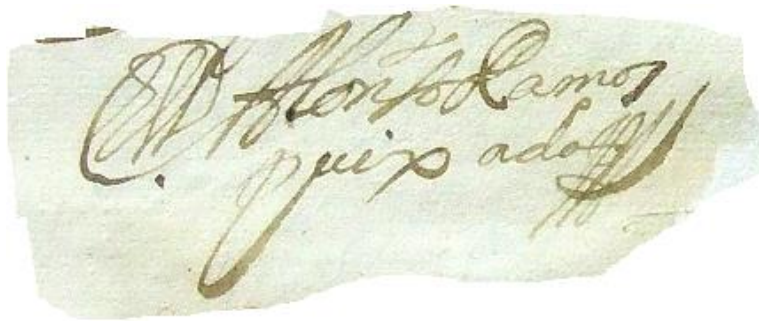 Alonso Ramos
quixada